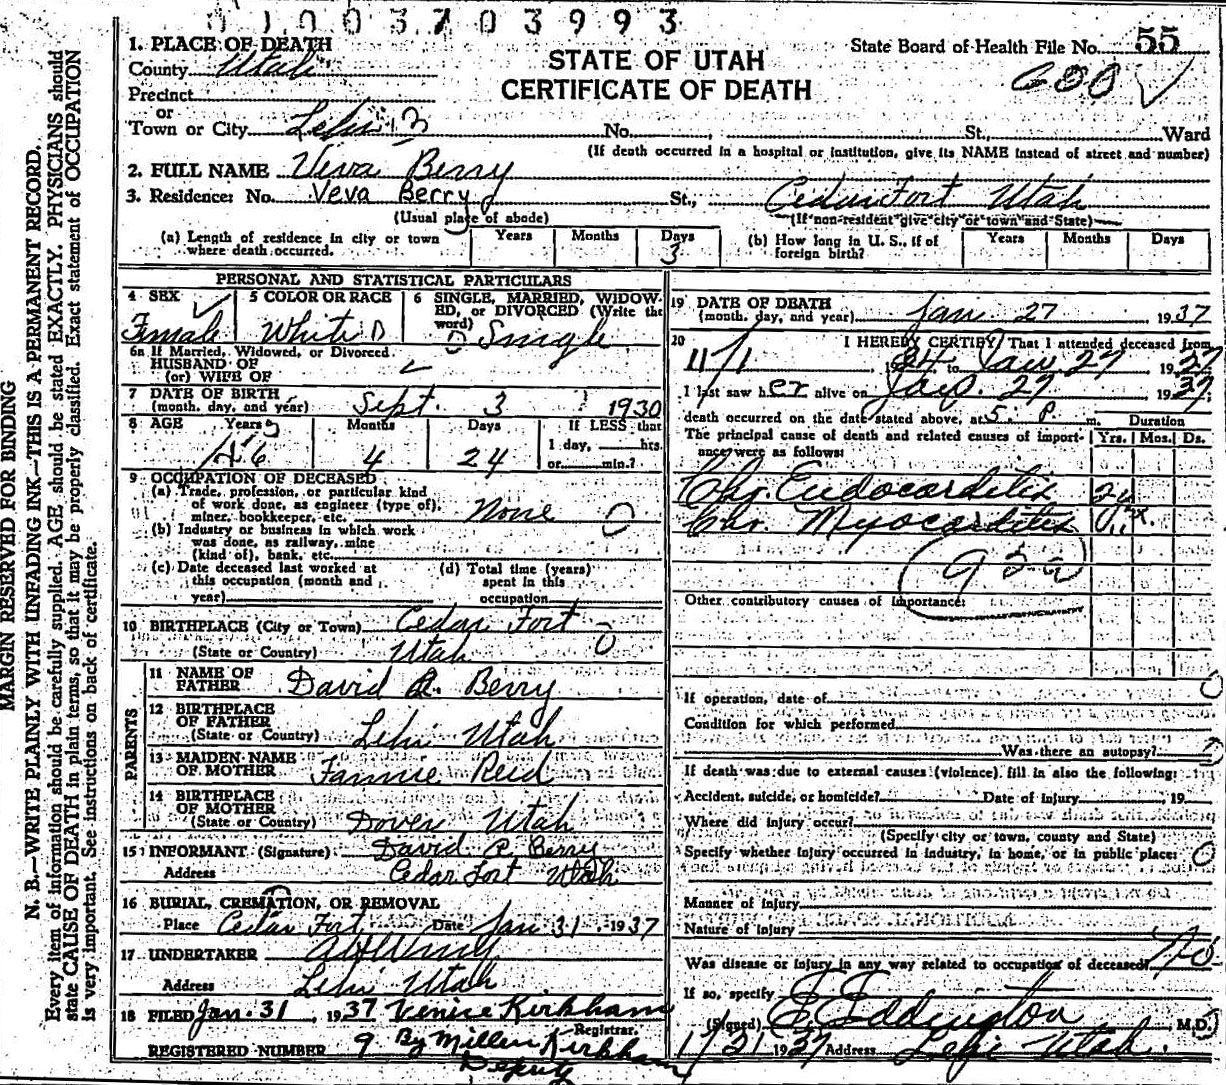 01003703993
MARGIN RESERVED FOR BINDING
N. B.—WRITE PLAINLY WITH UNFADING INK—THIS IS A PERMANENT RECORD.
Every item of information should be carefully supplied. AGE should be stated EXACTLY. PHYSICIANS should
state CAUSE OF DEATH in plain terms, so that it may be properly classified. Exact statement of OCCUPATION
is very important. See instructions on back of certificate.
STATE OF UTAH
CERTIFICATE OF DEATH
State Board of Health File No. 55
600
1. PLACE OF DEATH
County Utah
Precinct
or
Town or City Lehi No. St., Ward
(If death occurred in a hospital or institution, give its NAME instead of street and number)
2. FULL NAME Veva Berry
3. Residence: No. Veva Berry St., Cedar Fort Utah
(Usual place of abode) (If non-resident give city or town and State)
(a) Length of residence in city or town where death occurred. Years Months Days 3
(b) How long in U. S., if of foreign birth? Years Months Days
PERSONAL AND STATISTICAL PARTICULARS
4 SEX Female
5 COLOR OR RACE White
6 SINGLE, MARRIED, WIDOWED, or DIVORCED (Write the word) Single
6a If Married, Widowed, or Divorced
HUSBAND OF
(or) WIFE OF
7 DATE OF BIRTH
(month, day, and year) Sept. 3 1930
8 AGE Years 6 Months 4 Days 24 If LESS that 1 day, hrs. or min.?
9 OCCUPATION OF DECEASED
(a) Trade, profession, or particular kind
of work done, as engineer (type of),
miner, bookkeeper, etc. None
(b) Industry or business in which work
was done, as railway, mine
(kind of), bank, etc.
(c) Date deceased last worked at
this occupation (month and
year)
(d) Total time (years)
spent in this
occupation
10 BIRTHPLACE (City or Town) Cedar Fort
(State or Country) Utah
PARENTS
11 NAME OF
FATHER David R. Berry
12 BIRTHPLACE
OF FATHER
(State or Country) Lehi Utah
13 MAIDEN NAME
OF MOTHER Fannie Reid
14 BIRTHPLACE
OF MOTHER
(State or Country) Dover Utah
15 INFORMANT (Signature) David R. Berry
Address Cedar Fort Utah
16 BURIAL, CREMATION, OR REMOVAL
Place Cedar Fort Date Jan 31 1937
17 UNDERTAKER
Address Lehi Utah
18 FILED Jan. 31, 1937 Venice Kirkham
Registrar.
REGISTERED NUMBER 9 By Millen Kirkham
Deputy
19 DATE OF DEATH
(month, day, and year) Jan 27 1937
20 I HEREBY CERTIFY, That I attended deceased from
11/1 1934 to Jan. 27 1937
I last saw her alive on Jan. 27 1937
death occurred on the date stated above, at 5 P. m. Duration
The principal cause of death and related causes of importance were as follows: Yrs. Mos. Ds.
Chr. Endocarditis
Chr. Myocarditis
Other contributory causes of importance:
If operation, date of
Condition for which performed
Was there an autopsy?
If death was due to external causes (violence) fill in also the following:
Accident, suicide, or homicide? Date of injury , 19
Where did injury occur?
(Specify city or town, county and State)
Specify whether injury occurred in industry, in home, or in public place:
Manner of injury
Nature of injury
Was disease or injury in any way related to occupation of deceased? No
If so, specify
(Signed) E. Eddington M.D.
1/31 1937 Address Lehi Utah.